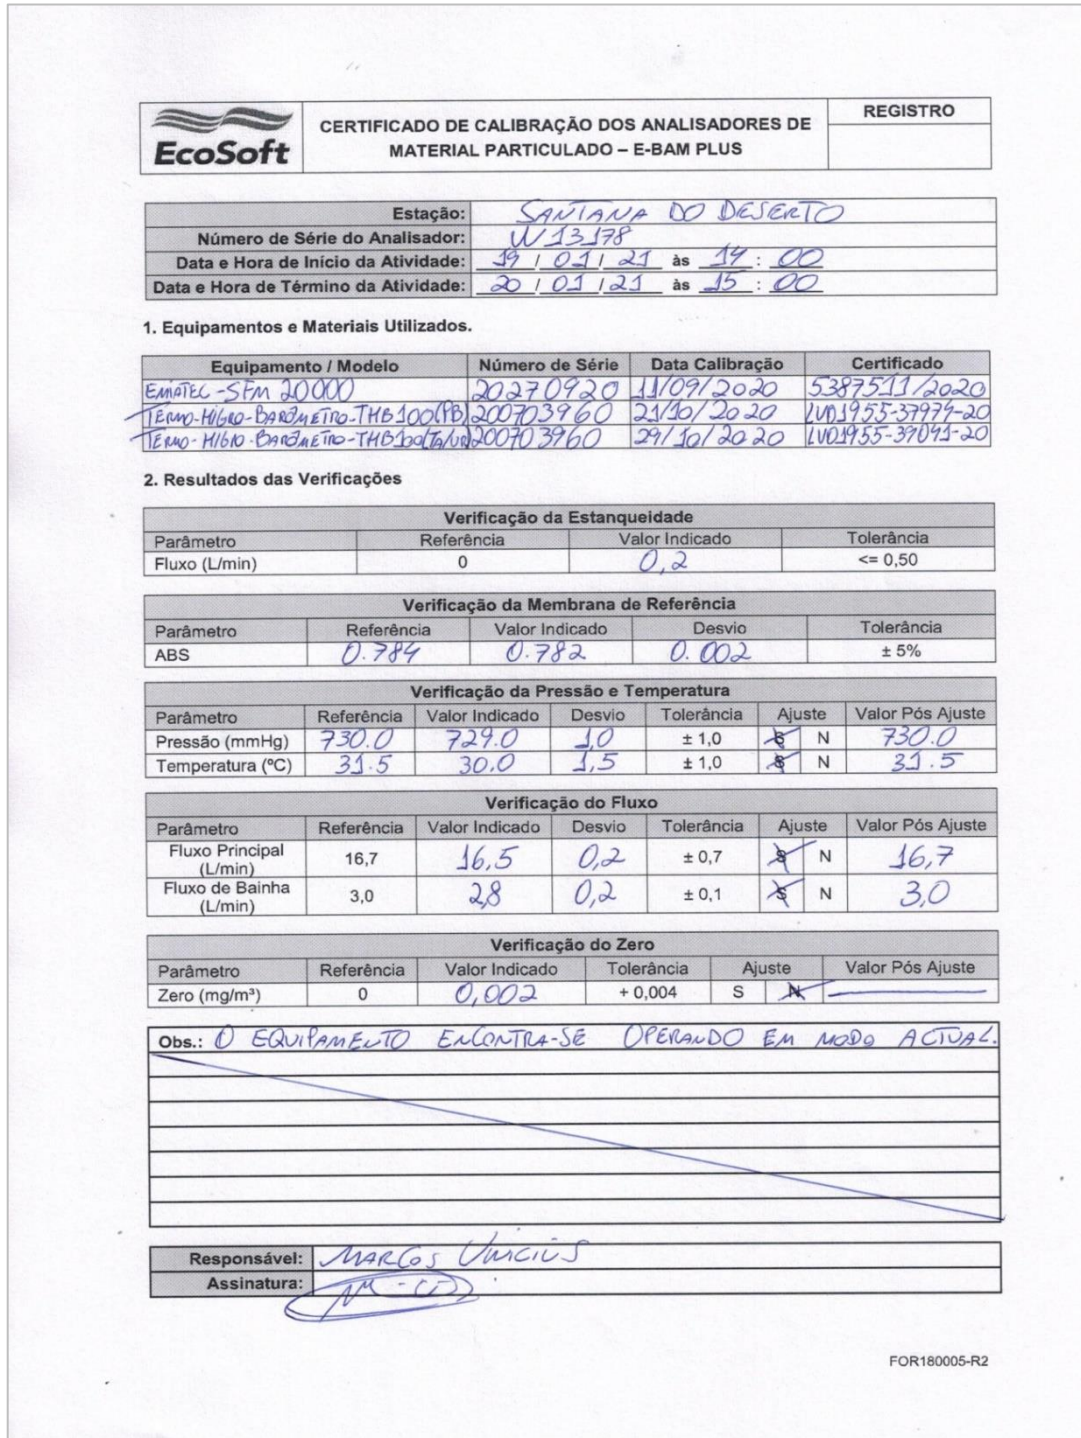 EcoSoft
CERTIFICADO DE CALIBRAÇÃO DOS ANALISADORES DE
MATERIAL PARTICULADO – E-BAM PLUS
REGISTRO
Estação: SANTANA DO DESERTO
Número de Série do Analisador: W13178
Data e Hora de Início da Atividade: 19 / 01 / 21 às 14 : 00
Data e Hora de Término da Atividade: 20 / 01 / 21 às 15 : 00
1. Equipamentos e Materiais Utilizados.
Equipamento / Modelo Número de Série Data Calibração Certificado
-SFM 20000 20270920 11/09/2020 5387511/2020
TERMO-HIGRO-BARÔMETRO-THB100(PB) 200703960 21/10/2020 LV01955-37974-20
TERMO-HIGRO-BARÔMETRO-THB100(TA/UR) 200703960 29/10/2020 LV01955-39041-20
2. Resultados das Verificações
Verificação da Estanqueidade
Parâmetro Referência Valor Indicado Tolerância
Fluxo (L/min) 0 0,2 <= 0,50
Verificação da Membrana de Referência
Parâmetro Referência Valor Indicado Desvio Tolerância
ABS 0.784 0.782 0.002 ± 5%
Verificação da Pressão e Temperatura
Parâmetro Referência Valor Indicado Desvio Tolerância Ajuste Valor Pós Ajuste
Pressão (mmHg) 730.0 729.0 1,0 ± 1,0 S N 730.0
Temperatura (ºC) 31.5 30.0 1,5 ± 1,0 S N 31.5
Verificação do Fluxo
Parâmetro Referência Valor Indicado Desvio Tolerância Ajuste Valor Pós Ajuste
Fluxo Principal
(L/min) 16,7 16,5 0,2 ± 0,7 S N 16,7
Fluxo de Bainha
(L/min) 3,0 2,8 0,2 ± 0,1 S N 3,0
Verificação do Zero
Parâmetro Referência Valor Indicado Tolerância Ajuste Valor Pós Ajuste
Zero (mg/m³) 0 0,002 + 0,004 S N
Obs.: O EQUIPAMENTO ENCONTRA-SE OPERANDO EM MODO ACTUAL.
Responsável: MARCOS VINICIUS
Assinatura:
FOR180005-R2